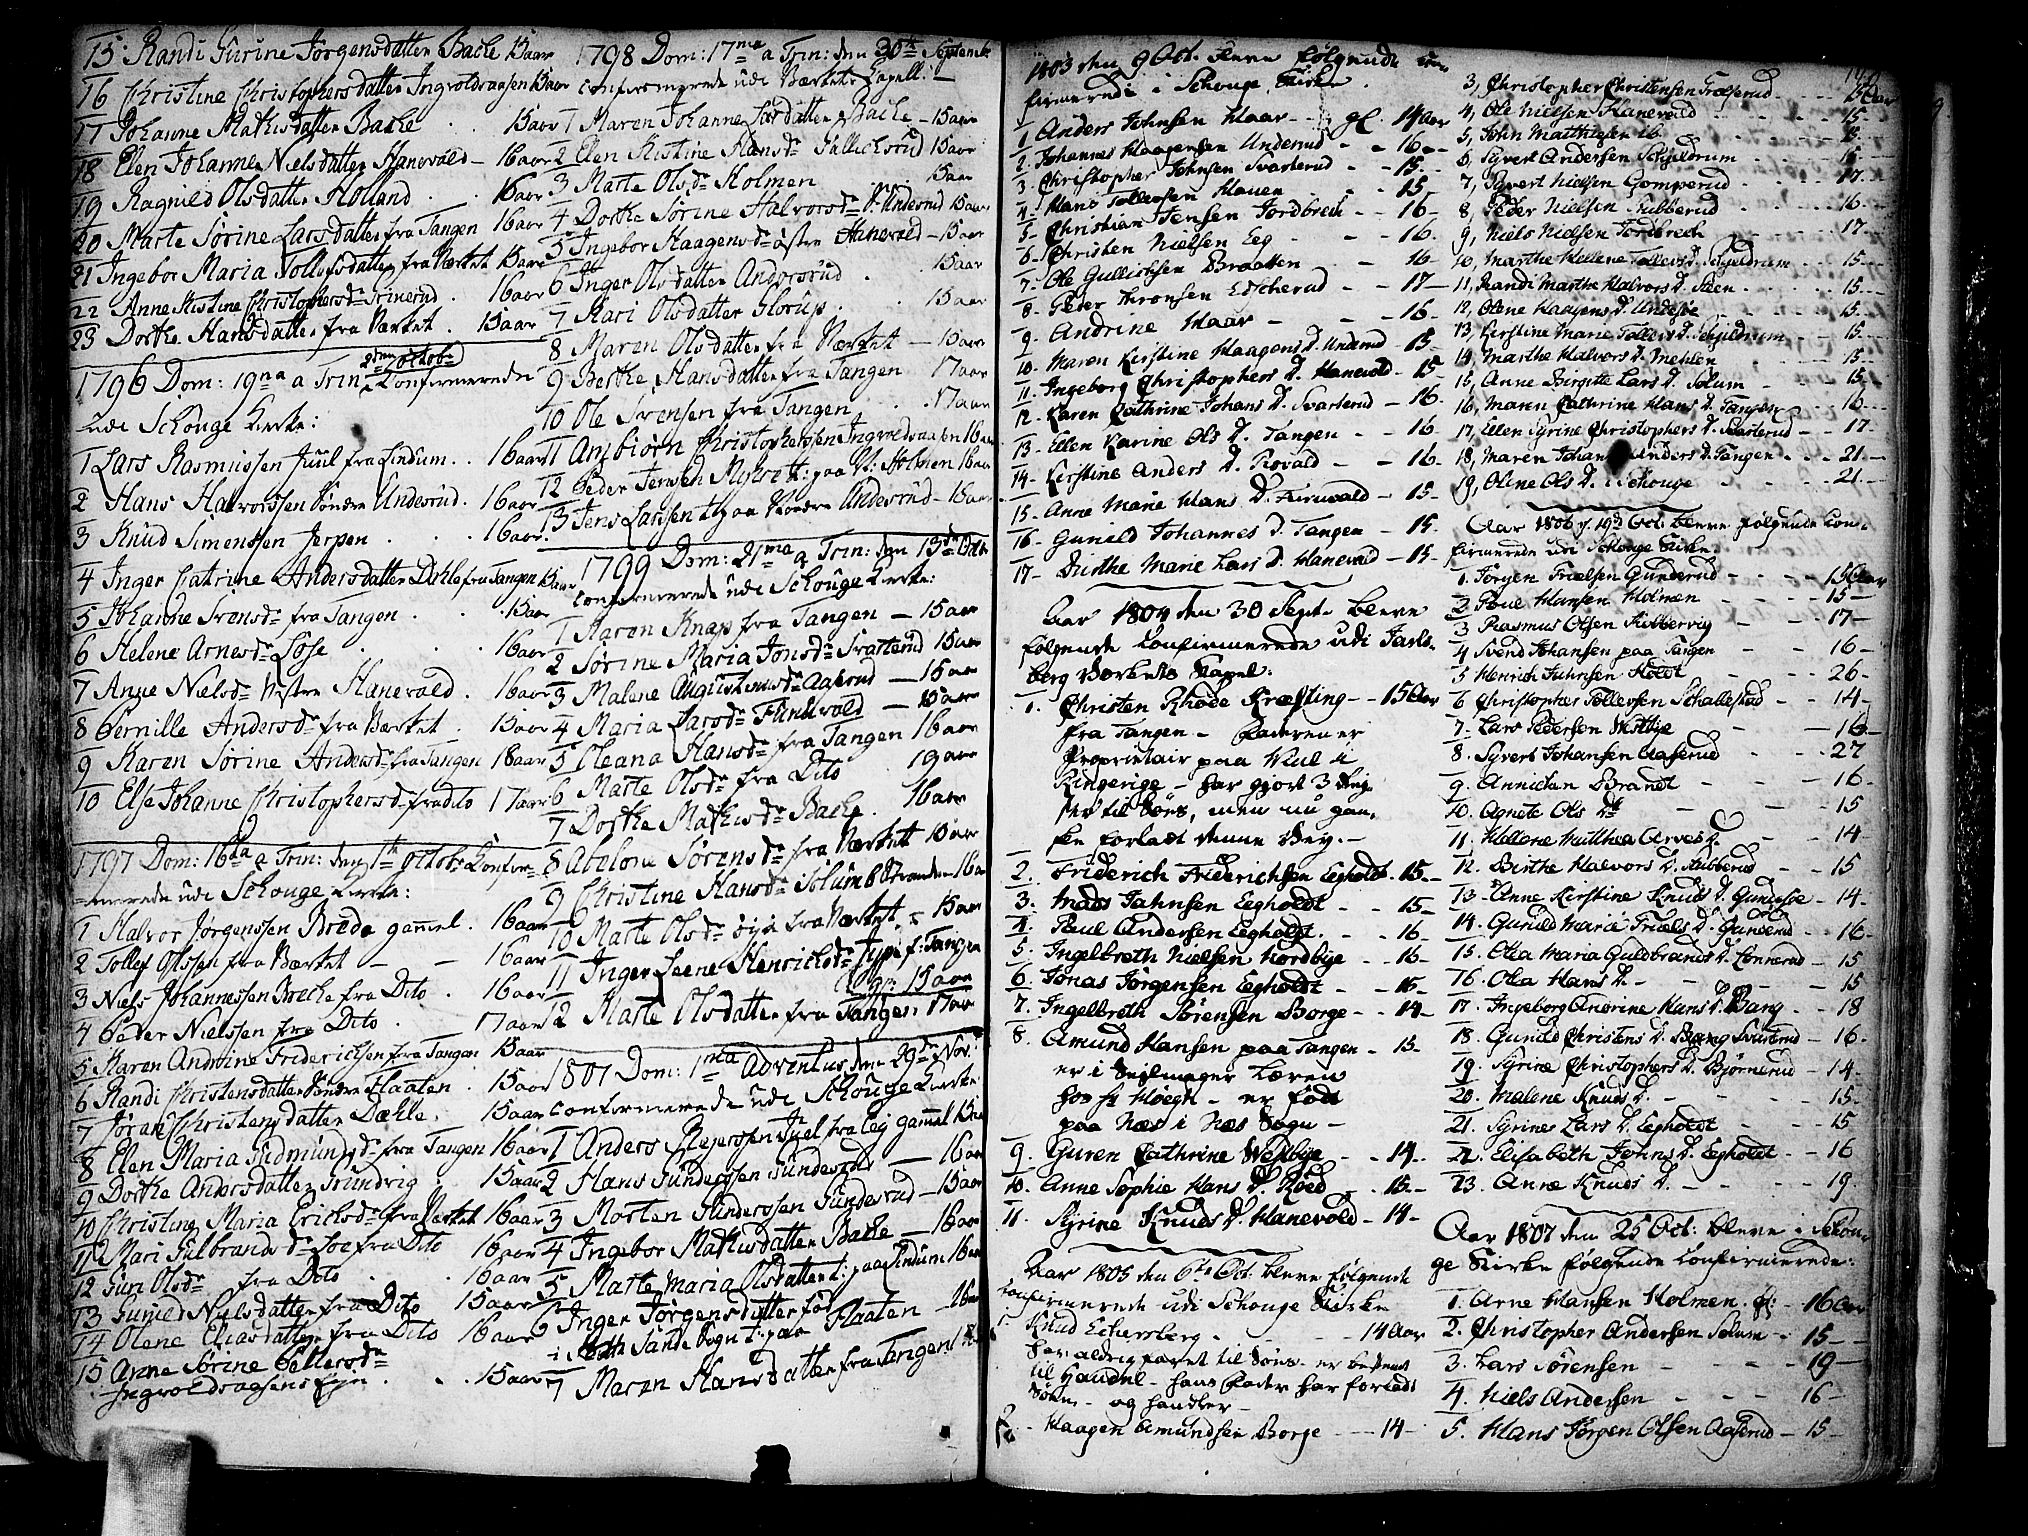 15. Randi Surine Jørgensdatter Bache 15 aar
16 Christine Christophersdatter Ingvoldsaasen 15 aar
17 Johanne Mathisdatter Bache . 15 aar
18 Elen Johanne Nielsdatter Hanevald - 16 aar
19 Ragnild Olsdatter Holland . 15 aar
20 Marte Sørine Larsdatter fra Tangen 16 aar
21 Ingebor Maria Tollefsdatter fra Værket 15 aar
22 Anne Kistine Christophersdr 16 aar
23 Dorthe Hansdatter fra Værket . 15 aar
1796 Dom: 19na a Trin: 2den octobr Confirmerede
udi Schouge Kirke:
1 Lars Rasmussen Juul fra Lindum . . 16 aar
2 Hans Halvorssen Søndre Undesrud . 16 aar
3 Knud Simenssen Jerpen . . . 16 aar
4 Inger Catrine Andersdatter Dehle fra Tangen 15 aar
5 Johanne Svensdr fra Tangen . . 15 aar
6 Helene Arnesdr Løse . . . 16 aar
7 Anne Nielsdr Vestre Hanevald . 16 aar
8 Pernille Andersdr fra Værket . 15 aar
9 Karen Sørine Andersdr fra Tangen 18 aar
10 Else Johanne Christophersdr fra dito 17 aar
1797 Dom: 16ta a Trin: den 1te octobr Confir-
merede udi Schouge Kirke:
1 Halvor Jørgenssen Brede gammel . 16 aar
2 Tollef Olssen fra Værket - - 16 aar
3 Niels Johannessen Beche fra Dito . 16 aar
4 Peder Nielssen fra Dito . 17 aar
5 Karen Andrine Friderichsen fra Tangen 15 aar
6 Randi Christensdatter Søndre Haaten . 15 aar
7 Jøran Christensdatter Dæhle . 15 aar
8 Elen Maria Gudmundsdr fra Tangen 16 aar
9 Dorthe Andersdatter Grundvig . 15 aar
10 Christine Maria Ericksdr fra Værket 16 aar
11 Mari Gulbrandsdr foe fra Dito 16 aar
12 Guri Olsdr fra Dito . 16 aar
13 Gunild Nielsdatter fra Dito 15 aar
14 Olene Eliasdatter fra Dito 16 aar
15 Anne Sørine Pettersdr
Ingvoldsaasens Eyn . . 15 aar
1798 Dom: 17ma a Trin: den 30te Septembr
confirmerede udi Værkets Capell:
1 Maren Johanne Larsdatter Bache - 15 aar
2 Elen Kistine Hansdr Gullichsrud 15 aar
3 Marte Olsdr Holmen 15 aar
4 Dorthe Sørine Halvorsdr V. Undesrud 15 aar
5 Ingebor Haagensdr østre Hanevald - 15 aar
6 Inger Olsdatter Andorsrud . 15 aar
7 Kari Olsdatter Glorup . . 15 aar
8 Maren Olsdatter fra Værket - 15 aar
9 Berthe Hansdatter fra Tangen 17 aar
10 Ole Svensen fra Tangen . . 17 aar
11 Ansbiørn Christopherssen Ingvoldsaasen 16 aar
12 Peder Jenssen Myhre t: paa V: Holmen 16 aar
13 Jens Larssen t: paa Nordre Undesrud - 15 aar
1799 Dom: 21ma a Trin: den 13de Octb
confirmerede udi Schouge Kirke:
1 Karen Knap fra Tangen - 15 aar
2 Sørine Maria Jonsdr Svartterud 15 aar
3 Malene Augustinusdr Aaserud - 15 aar
4 Maria Larsdr Funevald - 15 aar
5 Oleana Hansdr fra Tangen 16 aar
6 Marte Olsdr fra Dito 19 aar
7 Dorthe Mathisdr Bache . 16 aar
8 Abelone Sørensdr fra Værket 15 aar
9 Christine Hansdr Solumbstranden 16 aar
10 Marte Olsdr øya fra Værket . 15 aar
11 Inger Leene Henrichsdr Type f: Tangen
gl: 15 aar
12 Marte Olsdatter fra Tangen: 17 aar
1801 Dom: 1ma Adventus den 29de Nov:
confirmerede udi Schouge Kirke
1 Anders Rejerssen Juel fra Eig gammel 15 aar
2 Hans Gunderssen Gundesrud - 16 aar
3 Morten Gunderssen Gundesrud - 15 aar
4 Ingebor Mathisdatter Bache - 16 aar
5 Marte Maria Olsdatter t: paa Lindum 16 aar
6 Inger Jørgensdatter fød
i Sande Sogn t: paa Haaten - 16 aar
7 Maren Hansdatter fra Tangen 18 aar
1803 den 9 Oct. bleve følgende con-
firmerede i Schouge Kirke.
1 Anders Johnsen Haar - - gl 14 Aar
2. Johannes Haagensen Underud - - 16 -
3. Christopher Johnsen Svarterud - 15. -
4. Hans Tollevsen Hauen - - 15
5. Christian Jensen Jordbrek - - 16 -
6. Christen Nielsen Eeg - - 16. -
7. Ole Gullichsen Braatten - 16 -
8. Peder Thronsen Edscherud - - 17 -
9. Andrine Haar - - - 16. -
10. Maren Kirstine Haagens D. Underud - 15. -
11. Ingeborg Christophers D. Hanevold - 15 -
12. Karen Cathrine Johans D. Svarterud - 16. -
13. Ellen Karine Ols D. Tangen - - 16 -
14. Kirstine Anders D. - - 16 -
15. Anne Marie Hans D. Furuvald - 15. -
16. Gunild Johannes D. Tangen - 15. -
17 - Birthe Marie Lars D. Hanevold - 15. -
Aar 1804 den 30 Sept. bleve
følgende Confirmerede udi Jarls-
berg Værkets Capel.
1. Christen Rhode Kræfting - 15 Aar
fra Tangen - Faderen er
Proprietair paa Viul i
Ringerige - har gjort 3 Rej-
ser til Søes, men nu gan-
ske forladt denne Vej. -
2. Friderich Friderichsen Eegholdt - 15. -
3. Mads Jahnsen Eegholdt - - 15 -
4. Poul Andersen Eegholdt . - 16
5. Ingelbreth Nielsen Nordbye - 16 -
6. Jonas Jørgensen Eegholdt - - 15. -
7. Ingelbreth Sørensen Borge - - 14 -
8. Amund Hansen paa Tangen - 15. -
er i Sejlmager Læren
hos Hr Høegh - er født
paa Næs i Næs Sogn -
9. Guren Cathrine Westbye - - 14. -
10. Anne Sophie Hans D. Røed - 15. -
11. Syrine Knuds D. Hanevold - 14 -
Aar 1805 den 6te Oct. bleve følgende
Confirmerede udi Schouge Kirke
1. Knud Echersberg. - - - - 14 Aar
har aldrig faret til Søes - er bestemt
til Handel - hans Fader har forladt
Søen - og handler -
2. Haagen Amundsen Borge - - 14 -
3, Christopher Christensen Frølserud - - - 15 Aar
4, Ole Nielsen Hanevold - - - 15 -
5, John Matthiesen ib - - - 18. -
6, Syvert Andersen Schjeldrum - - - 15 -
7, Syvert Nielsen Gomperud - - - 17. -
8, Peder Nielsen Stubberud - - - 16. -
9, Niels Nielsen Jordbrech - - - 17. -
10, Marthe Hellene Tollevs D. Schjeldrum - - 15. -
11, Randi Marthe Halvors D. Steen - - 15. -
12, Olene Haagens D. Undelse - - 15. -
13, Kirstine Marie Tollevs D. Schjeldrum - - 15. -
14, Marthe Halvors D. Mehlen - - 15 -
15, Anne Birgitte Lars D. Solum - - 15. -
16, Maren Cathrine Hans D. Tangen - 16. -
17, Ellen Syrine Christophers D. Svarterud - - 17. -
18, Maren Johan Anders D. Tangen - - 21 -
19, Oline Ols D. i Schouge - - - - 21. -
Aar 1806 d. 19de Oct. bleve følgende Con-
firmerede udi Schouge Kirke.
1. Jørgen Trulsen Gunderud - - - 15 Aar
2. Poul Hansen Holmen - - 15 -
3 Rasmus Olsen Kobbervig - - 17 -
4 Svend Johansen paa Tangen - 16 -
5 Henrich Juhnsen Holdt - 26 -
6 Christopher Tollevsen Schallestad - - 14 -
7. Lars Pedersen Westbye - - 16 -
8. Syvert Johansen Aaserud - - 27
9. Annichen Brandt - - 16 -
10. Agnete Ols Dr - - 15
11. Hellene Matthea Arves D. - - 14 -
12. Birthe Halvors D. Stubberud - - 15
13. Anne Kirstine Knuds D. Gundesøe - 14 -
14. Gunild Marie Truels D. Gunderud - - 16 -
15. Olea Maria Guldbrands D. Lønnerud - 15
16. Olea Hans D. - - - - 15
17. Ingeborg Andrine Hans D. Bang - 18
18. Gunild Christens D. Svarterud - 16 -
19. Syrine Christophers D. Bjørnerud - 14 -
20. Malene Knuds D. - - - 15 -
21. Syrine Lars D. Eegholdt - - 15
22. Elisabeth Johns D. Eegholdt - - 16
23. Anne Knuds D. - - - 19
Aar 1807 den 25 Oct. bleve i Schou-
ge Kirke følgende Confirmerede:
1. Arne Hansen Holmen. gl: - 16 Aar
2. Christopher Andersen Solum - 15 -
3. Lars Sørensen - - - 19 -
4. Niels Andersen - - - 16 -
5. Hans Jørgen Olsen Aaserud - 15 -